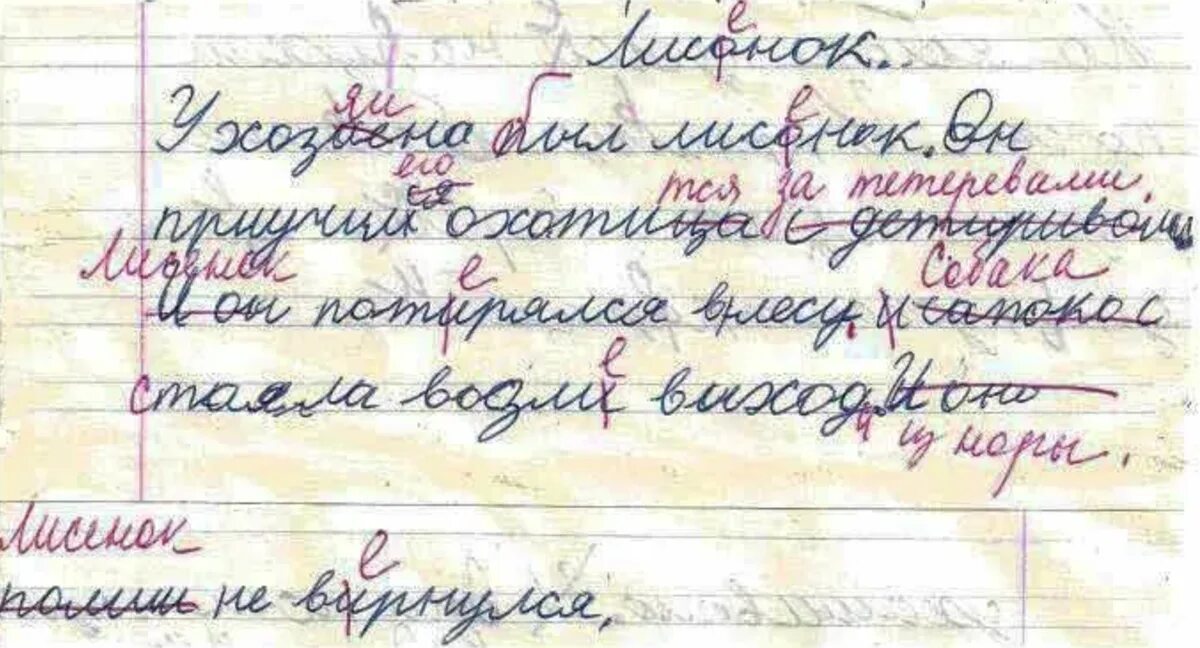 е
Лисонок.
яи
У хозаена был лисонок. Он
его
тся за тетеревами.
приучил ся охотица с детиривоми
Лисёнок е Собака
И он потирялся в лесу. и сапока с
е
стаяла возли выход. И оно
из норы.
Лисенок
е
не вирнулся.